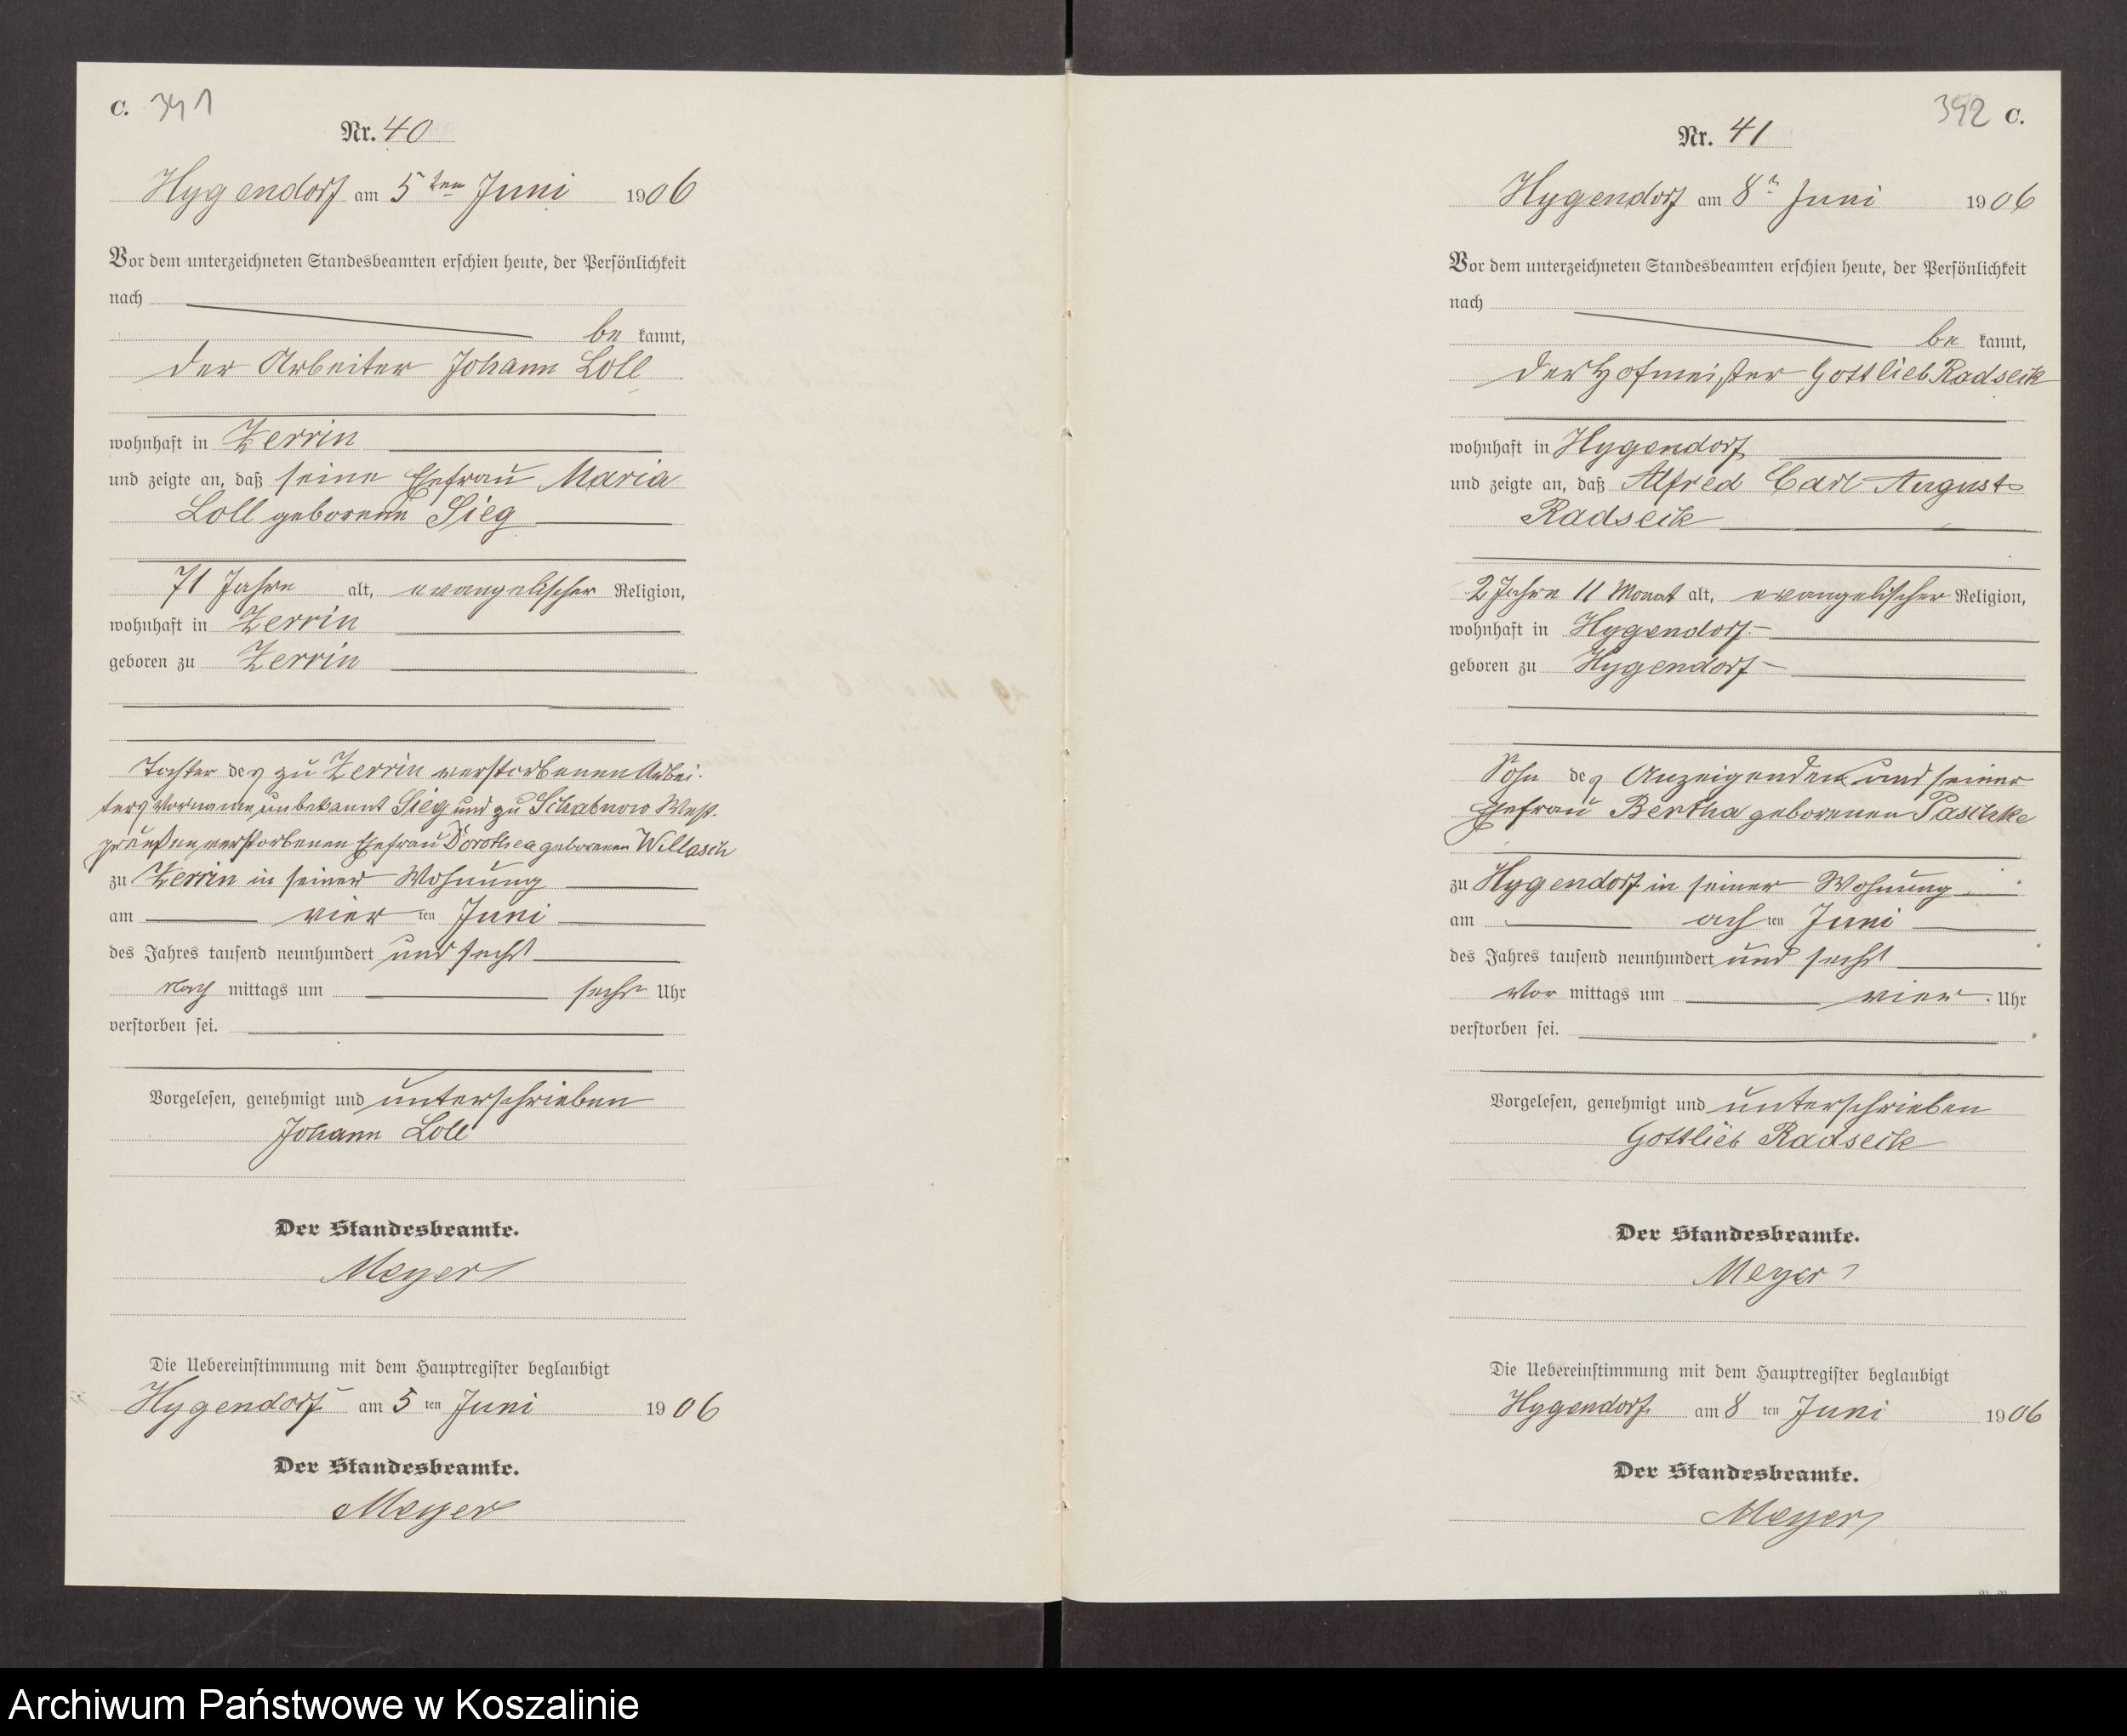 C. 391
Nr. 40
Hygendorf am 5ten Juni 1906
Vor dem unterzeichneten Standesbeamten erschien heute, der Persönlichkeit
nach
be kannt,
der Arbeiter Johann Loll
wohnhaft in Zerrin
und zeigte an, daß seine Ehefrau Maria
Loll geborene Sieg
71 Jahre alt, evangelischer Religion,
wohnhaft in Zerrin
geboren zu Zerrin
Tochter des zu Zerrin verstorbenen Arbei-
ters Vorname unbekannt Sieg und zu West-
preußen verstorbenen Ehefrau Dorothea geborenen Willasch
zu Zerrin in seiner Wohnung
am vier ten Juni
des Jahres tausend neunhundert und sechs
Nach mittags um sechs Uhr
verstorben sei.
Vorgelesen, genehmigt und unterschrieben
Johann Loll
Der Standesbeamte.
Meyer
Die Uebereinstimmung mit dem Hauptregister beglaubigt
Hygendorf am 5 ten Juni 1906
Der Standesbeamte.
Meyer
392 C.
Nr. 41
Hygendorf am 8 Juni 1906
Vor dem unterzeichneten Standesbeamten erschien heute, der Persönlichkeit
nach
be kannt,
der Hofmeister Gottlieb Radseck
wohnhaft in Hygendorf
und zeigte an, daß Alfred Carl August
Radseck
2 Jahre 11 Monat alt, evangelischer Religion,
wohnhaft in Hygendorf
geboren zu Hygendorf
Sohn des Anzeigenden und seiner
Ehefrau Bertha geborenen Paschke
zu Hygendorf in seiner Wohnung
am ach ten Juni
des Jahres tausend neunhundert und sechs
Vor mittags um vier Uhr
verstorben sei.
Vorgelesen, genehmigt und unterschrieben
Gottlieb Radseck
Der Standesbeamte.
Meyer
Die Uebereinstimmung mit dem Hauptregister beglaubigt
Hygendorf am 8 ten Juni 1906
Der Standesbeamte.
Meyer
Archiwum Państwowe w Koszalinie